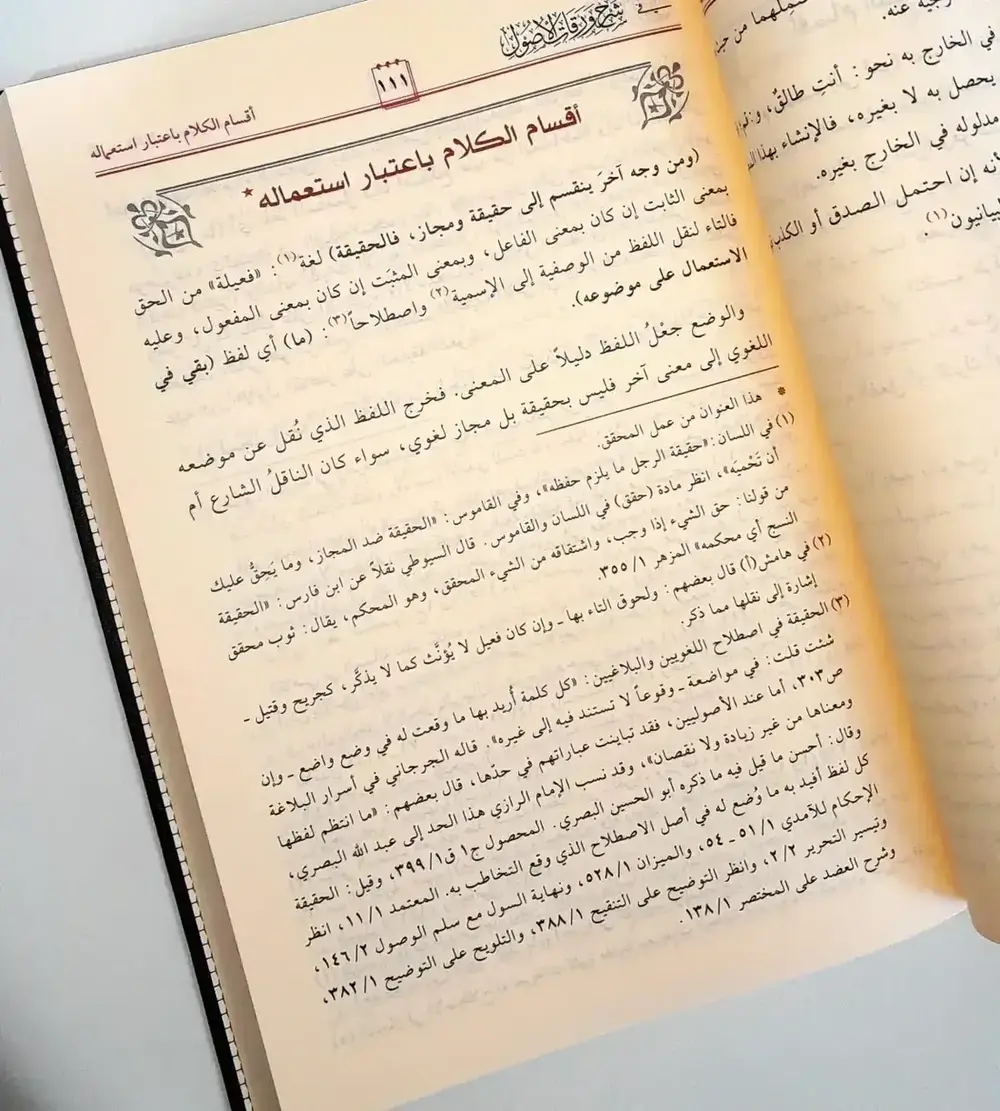 في شرح ورقات الأصول
١١١
أقسام الكلام باعتبار استعماله
أقسام الكلام باعتبار استعماله*
(ومن وجه آخرَ ينقسم إلى حقيقة ومجاز، فالحقيقة) لغة(١): «فعيلة» من الحق
بمعنى الثابت إن كان بمعنى الفاعل، وبمعنى المثبَت إن كان بمعنى المفعول، وعليه
فالتاء لنقل اللفظ من الوصفية إلى الإسمية(٢) واصطلاحاً(٣): (ما) أي لفظ (بقي في
الاستعمال على موضوعه).
والوضع جعْلُ اللفظ دليلاً على المعنى. فخرج اللفظ الذي نُقل عن موضعه
اللغوي إلى معنى آخر فليس بحقيقة بل مجاز لغوي، سواء كان الناقلُ الشارع أم
* هذا العنوان من عمل المحقق.
(١) في اللسان: «حقيقة الرجل ما يلزم حفظه»، وفي القاموس: «الحقيقة ضد المجاز، وما يَحِقُّ عليك
أن تَحْميَه»، انظر مادة (حقق) في اللسان والقاموس. قال السيوطي نقلاً عن ابن فارس: «الحقيقة
من قولنا: حق الشيء إذا وجب، واشتقاقه من الشيء المحقق، وهو المحكم، يقال: ثوب محقق
النسج أي محكمه» المزهر ١/ ٣٥٥.
(٢) في هامش(أ) قال بعضهم: ولحوق التاء بها ـ وإن كان فعيل لا يُؤنَّث كما لا يذكَّر، كجريح وقتيل ـ
إشارة إلى نقلها مما ذكر.
(٣) الحقيقة في اصطلاح اللغويين والبلاغيين: «كل كلمة أُريد بها ما وقعت له في وضع واضع ـ وإن
شئت قلت: في مواضعة ـ وقوعاً لا تستند فيه إلى غيره». قاله الجرجاني في أسرار البلاغة
ص٣٠٣، أما عند الأصوليين، فقد تباينت عباراتهم في حدّها، قال بعضهم: «ما انتظم لفظها
ومعناها من غير زيادة ولا نقصان»، وقد نسب الإمام الرازي هذا الحد إلى عبد الله البصري،
وقال: أحسن ما قيل فيه ما ذكره أبو الحسين البصري. المحصول ج١ ق١/ ٣٩٩، وقيل: الحقيقة
كل لفظ أفيد به ما وُضع له في أصل الاصطلاح الذي وقع التخاطب به. المعتمد ١/ ١١، انظر
الإحكام للآمدي ١/ ٥١ ـ ٥٤، والميزان ١/ ٥٢٨، ونهاية السول مع سلم الوصول ٢/ ١٤٦،
وتيسير التحرير ٢/ ٢، وانظر التوضيح على التنقيح ١/ ٣٨٨، والتلويح على التوضيح ١/ ٣٨٢،
وشرح العضد على المختصر ١/ ١٣٨.
عنه.
من
في الخارج به نحو: أنتِ طالقٌ،
يحصل به لا بغيره، فالإنشاء بهذا
مدلوله في الخارج بغيره.
أنه إن احتمل الصدق أو الكذب
(١).